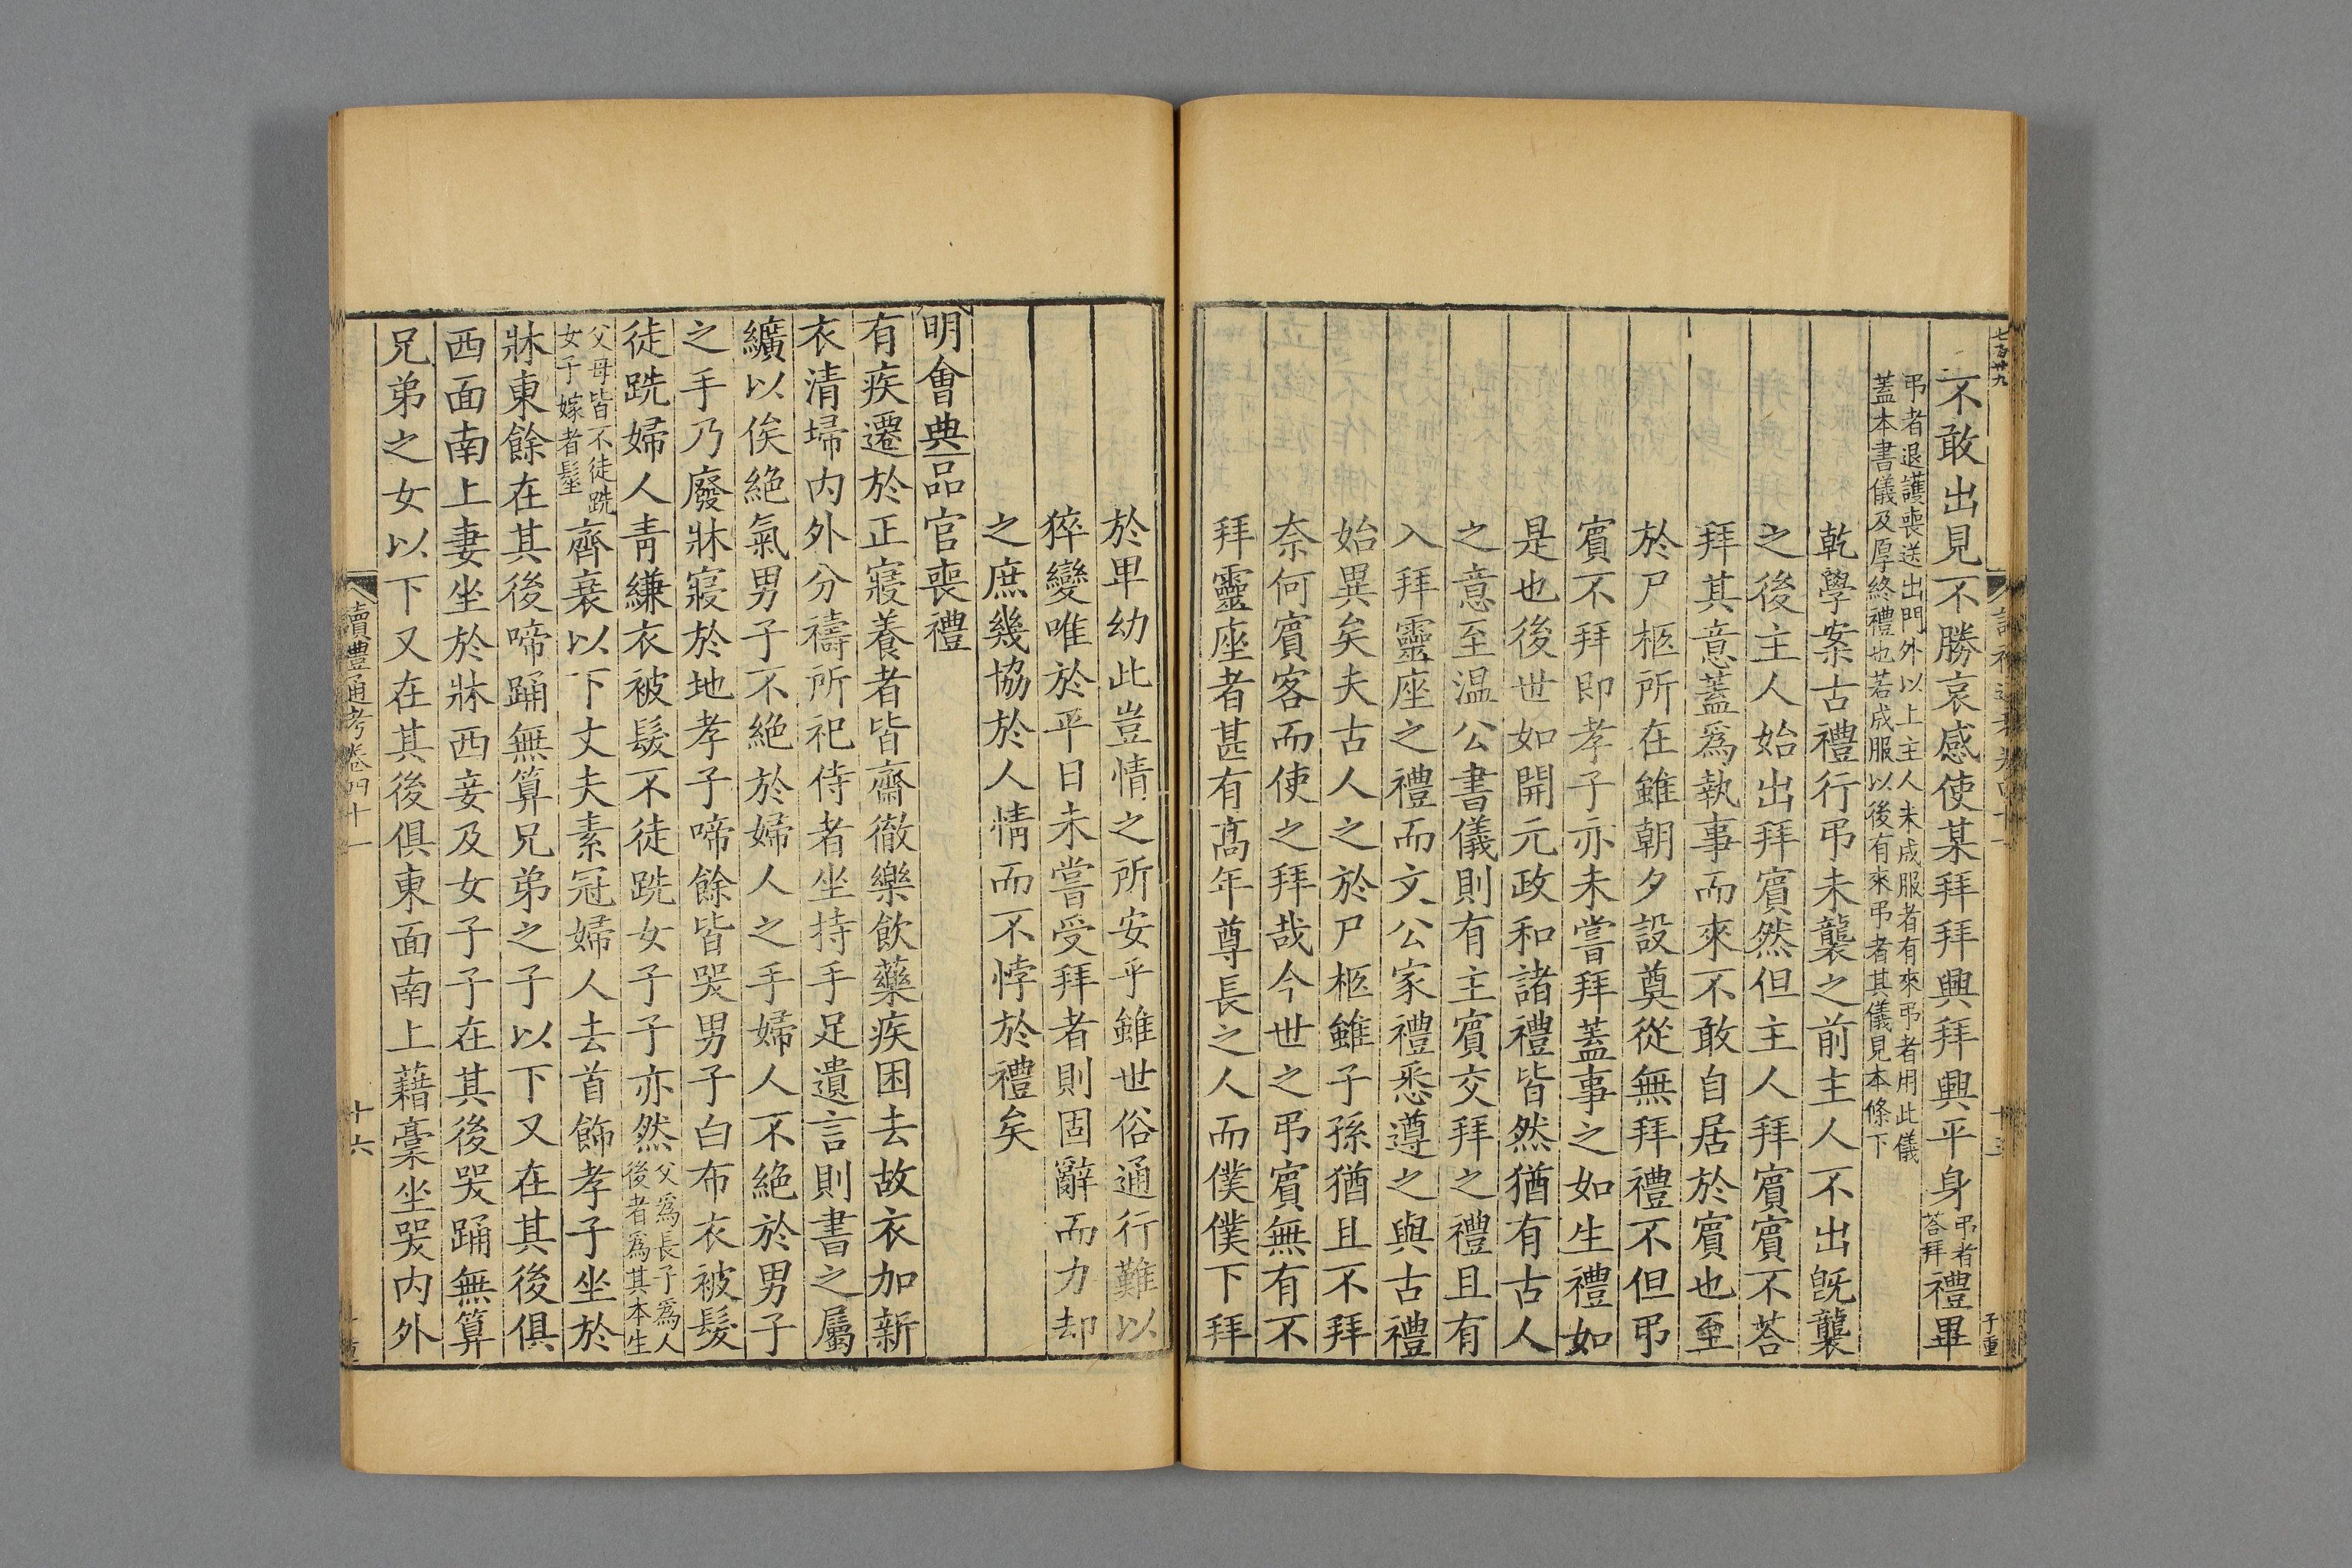 七百廿九
不敢出見不勝哀感使某拜拜興拜興平身弔者答拜禮畢
弔者退護喪送出門外以上主人未成服者有來弔者用此儀
蓋本書儀及厚終禮也若成服以後有來弔者其儀見本條下
乾學案古禮行弔未襲之前主人不出旣襲
之後主人始出拜賔然但主人拜賔賔不荅
拜其意蓋爲執事而來不敢自居於賔也至
於尸柩所在雖朝夕設奠從無拜禮不但弔
賔不拜即孝子亦未嘗拜蓋事之如生禮如
是也後世如開元政和諸禮皆然猶有古人
之意至温公書儀則有主賔交拜之禮且有
入拜靈座之禮而文公家禮悉遵之與古禮
始異矣夫古人之於尸柩雖子孫猶且不拜
奈何賔客而使之拜哉今世之弔賔無有不
拜靈座者甚有髙年尊長之人而僕僕下拜
於卑幼此豈情之所安乎雖世俗通行難以
猝變唯於平日未嘗受拜者則固辭而力却
之庶幾協於人情而不悖於禮矣
明會典品官喪禮
有疾遷於正寢養者皆齋徹樂飲藥疾困去故衣加新
衣清埽内外分禱所祀侍者坐持手足遺言則書之屬
纊以俟絶氣男子不絶於婦人之手婦人不絶於男子
之手乃廢牀寢於地孝子啼餘皆哭男子白布衣被髮
徒跣婦人青縑衣被髮不徒跣女子子亦然父爲長子爲人後者爲其本生
父母皆不徒跣女子嫁者髽齊衰以下丈夫素冠婦人去首飾孝子坐於
牀東餘在其後啼踊無算兄弟之子以下又在其後俱
西面南上妻坐於牀西妾及女子子在其後哭踊無算
兄弟之女以下又在其後俱東面南上藉藁坐哭内外
讀禮通考卷四十一
十六